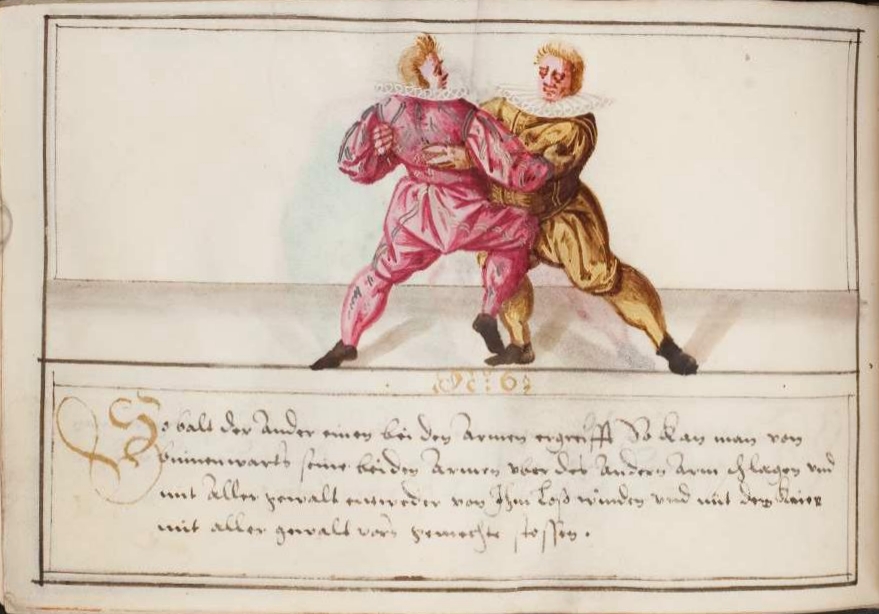 N: 6:
So balt der Ander einen bei den Armen ergreifft So kan man von
binnenwarts seine beiden Armen vber des Andern Arm schlagen vnd
mit Aller gewalt entweder von Ihm loß winden vnd mit den knien
mit aller gewalt vors gemechte stossen.